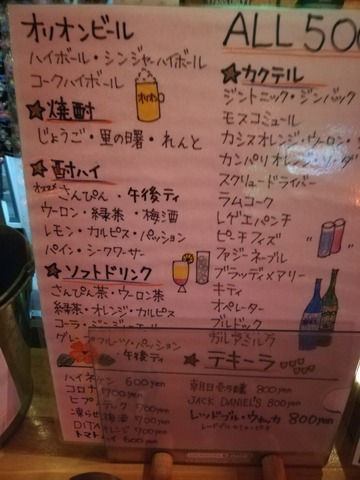 オリオンビール
ハイボール・ジンジャーハイボール
コークハイボール
オリオン
★焼酎
じょうご・里の曙・れんと
★酎ハイ
オススメ さんぴん・午後ティ
ウーロン・緑茶・梅酒
レモン・カルピス・パッション
パイン・シークワーサー
★ソフトドリンク
さんぴん茶・ウーロン茶
緑茶・オレンジ・カルピス
コーラ・ジンジャーエール
グレープフルーツ・パッション
・午後ティ
ハイネケン 600yen
コロナ 700yen
700yen
凍らせ梅酒 700yen
オレンジ 700yen
トマト 600yen
ALL 500
★カクテル
ジントニック・ジンバック
モスコミュール
カシスオレンジ・ウーロン・
カンパリオレンジ・ソーダ
スクリュードライバー
ラムコーク
レゲエパンチ
ピーチフィズ 〃
ファジーネーブル 〃
ブラッディメアリー
キティ
オペレーター
ブルドック
カルアミルク
★テキーラ
朝日壱乃醸 800yen
JACK DANIEL'S 800yen
レッドブル・ウォッカ 800yen